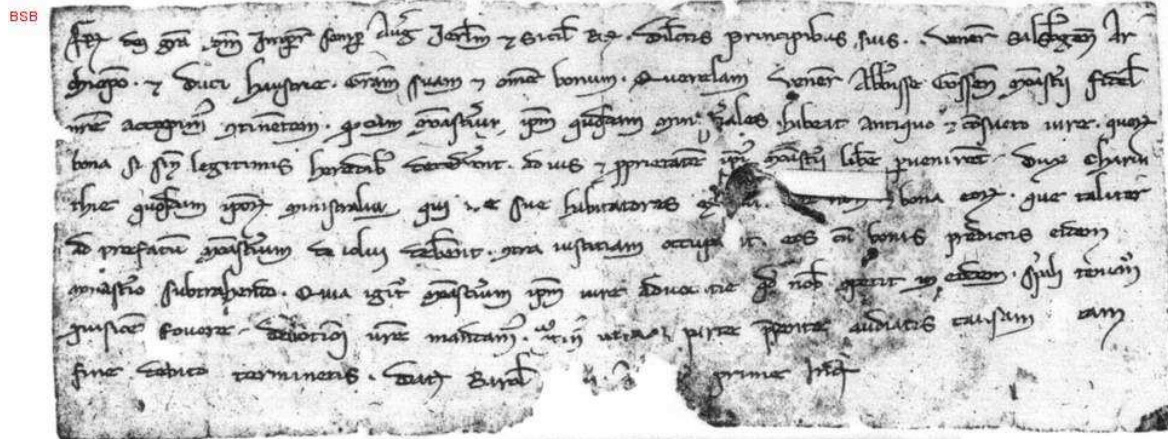 Fr̄ dei gr̄a Rom̄ Imper̄ semp Auḡ Ierl̄m ⁊ Sicil̄ Rex. dilectis principibus suis. vener̄ Salzb̄gen̄ Ar
chiep̄o. ⁊ duci Haustrie. Gr̄am suam ⁊ om̄e bonum. Querelam vener̄ Abb̄tisse Gossen̄ monast̄ii fidel̄
nr̄e accepim̄ ꝯtinentem. qd̄ cum monast̄iu ip̄m quosdam minist̄iales habeat antiquo ⁊ ꝯsueto iure. quoꝝ
bona si sn̄ legitimis heredib̄ deced̄unt. ad ius ⁊ ꝓprietatem ip̄i monast̄ii lib̄e ꝑvenirent. dux Charin
thie quosdam ipoꝝ ministialiū qui sue habitatores bona eoꝝ. que taliter
ad prefatū monast̄ium devolui deb̄ent. ꝯtra iustitiam occupavit. eos cū bonis predictis eidem
monast̄io subtrahendo. Quia igit̄ monast̄ium ip̄m iure advocatie
fovere. devotioni vr̄e mandam̄. parte p̄sente audiatis causam eam
fine debito terminetis. dat̄ Barol̄ prime Ind̄